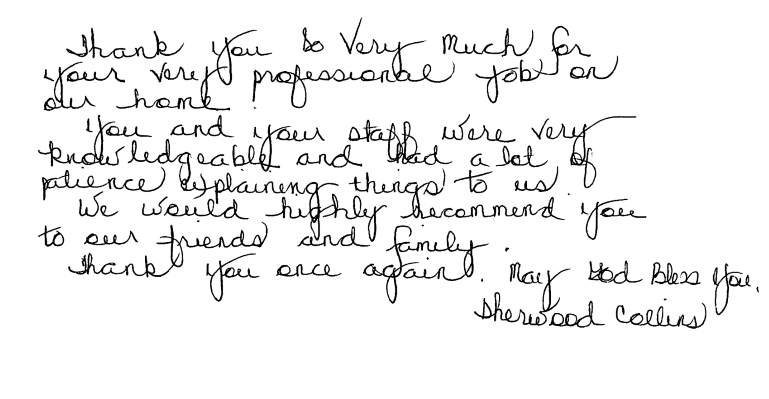 Thank you so Very Much for
your very professional job on
our home!
You and your staff were very
knowledgeable and had a lot of
patience explaining things to us.
We would highly recommend you
to our friends and family.
Thank you once again. May God Bless You.
Sherwood Collins